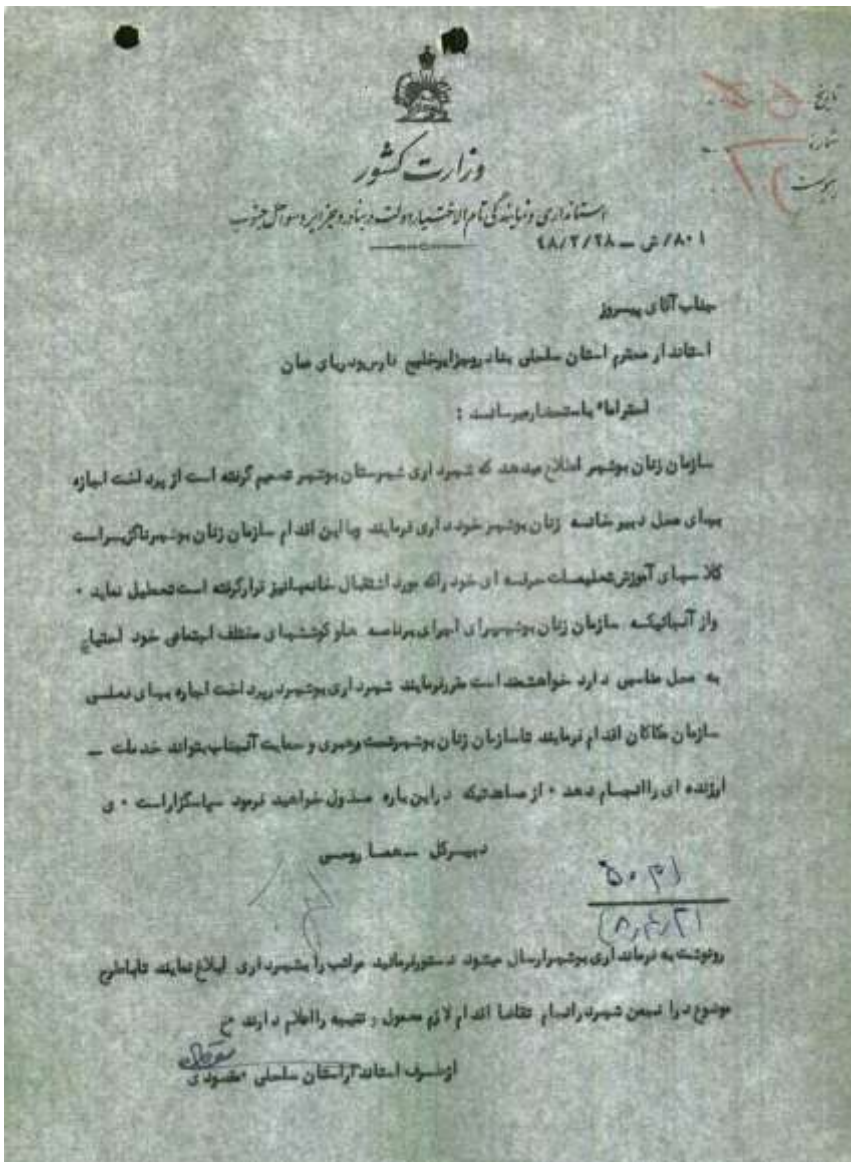 تاریخ
شماره
پیوست
وزارت کشور
استانداری و نمایندگی تام الاختیار دولت در بنادر و جزایر و سواحل جنوب
۸۰۱/ش ــ ۴۸/۲/۲۸
جناب آقای پیروز
استاندار محترم استان ساحلی بنادر و جزایر خلیج فارس و دریای عمان
احتراما" باستحضار میرساند :
سازمان زنان بوشهر اطلاع میدهد که شهرداری شهرستان بوشهر تصمیم گرفته است از پرداخت اجازه
بهای محل دبیرخانه زنان بوشهر خودداری فرمایند وبا این اقدام سازمان زنان بوشهر ناگزیر است
کلاسهای آموزش تعلیمات حرفه ای خود راکه مورد استقبال خانمها نیز قرار گرفته است تعطیل نماید ۰
واز آنجائیکه سازمان زنان بوشهر برای اجرای برنامه ها و کوششهای مختلف اجتماعی خود احتیاج
به محل مناسبی دارد خواهشمند است مقرر فرمایند شهرداری بوشهر در پرداخت اجاره بهای فعلی
سازمان کماکان اقدام فرمایند تا سازمان زنان بوشهر تحت رهبری و حمایت آنجناب بتواند خدمات ــ
ارزنده ای را انجام دهد ۰ از مساعدتیکه در این باره مبذول خواهید فرمود سپاسگزار است ۰ ی
دبیرکل ــ هما روحی
رونوشت به فرمانداری بوشهر ارسال میشود دستور فرمائید مراتب را بشهرداری ابلاغ نمایند تا با طرح
موضوع در انجمن شهر در انجام تقاضا اقدام لازم معمول و نتیجه را اعلام دارند خ
از طرف استاندار استان ساحلی